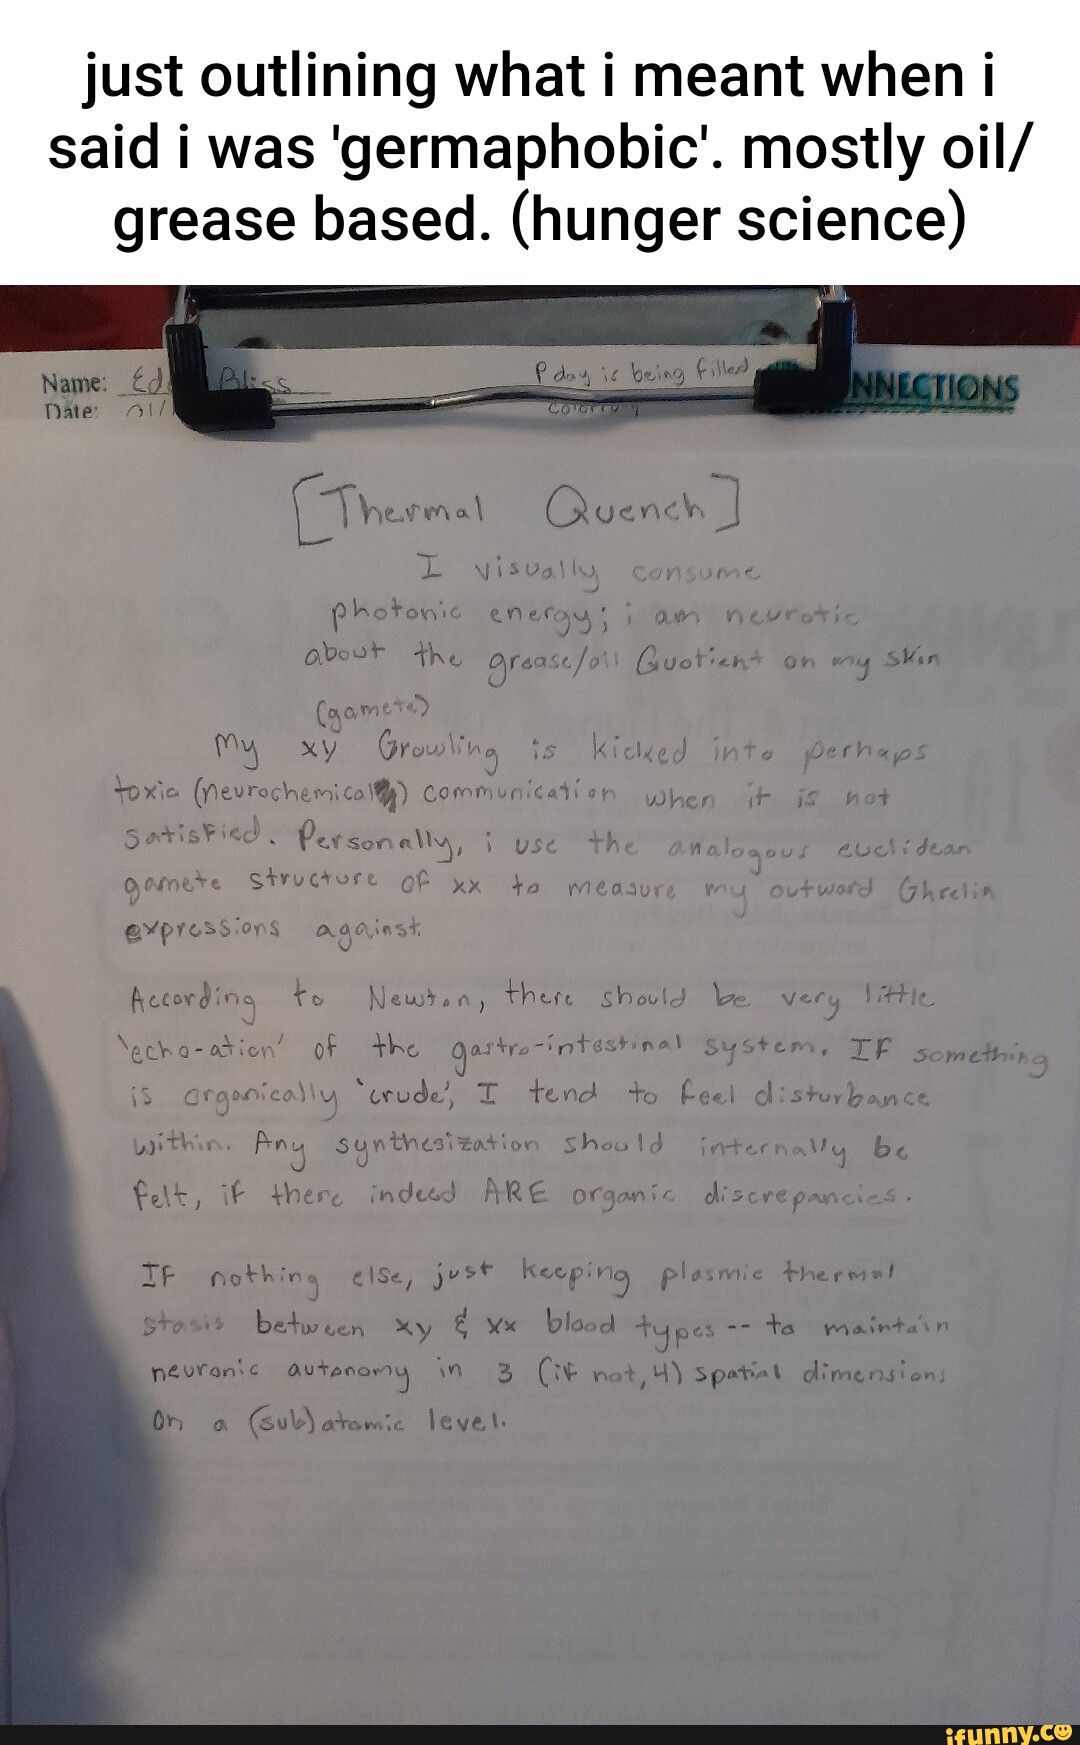 just outlining what i meant when i
said i was 'germaphobic'. mostly oil/
grease based. (hunger science)
Name: Ed Bliss
P day is being filled
NNECTIONS
Date: 01/
[Thermal Quench]
I visually consume
photonic energy; i am neurotic
about the grease/oil Quotient on my skin
(gamete)
My xy Growling is kicked into perhaps
toxic (neurochemical) communication when it is not
satisfied. Personally, i use the analogous euclidean
gamete structure of xx to measure my outword Ghrelin
expressions against.
According to Newton, there should be very little
'echo-ation' of the gastro-intestinal system. If something
is organically 'crude', I tend to feel disturbance
within. Any synthesization should internally be
felt, if there indeed ARE organic discrepancies.
If nothing else, just keeping plasmic thermal
stasis between xy & xx blood types -- to maintain
neuronic autonomy in 3 (if not, 4) spatial dimensions
On a (sub)atomic level.
ifunny.co